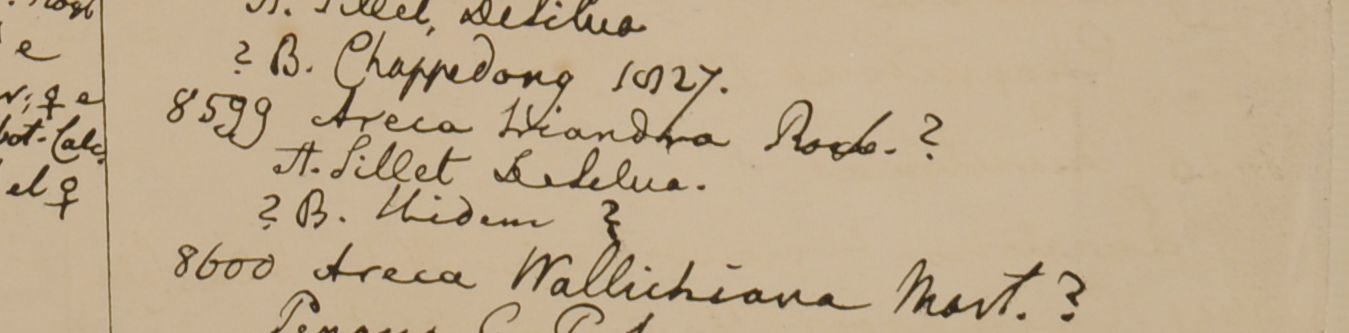 e
A. Sillet, DeSilva
? B. Chappedong 1827.
8599 Areca triandra Roxb. ?
A. Sillet DeSilva.
? B. Ibidem ?
8600 Areca Wallichiana Mart. ?
el ♀